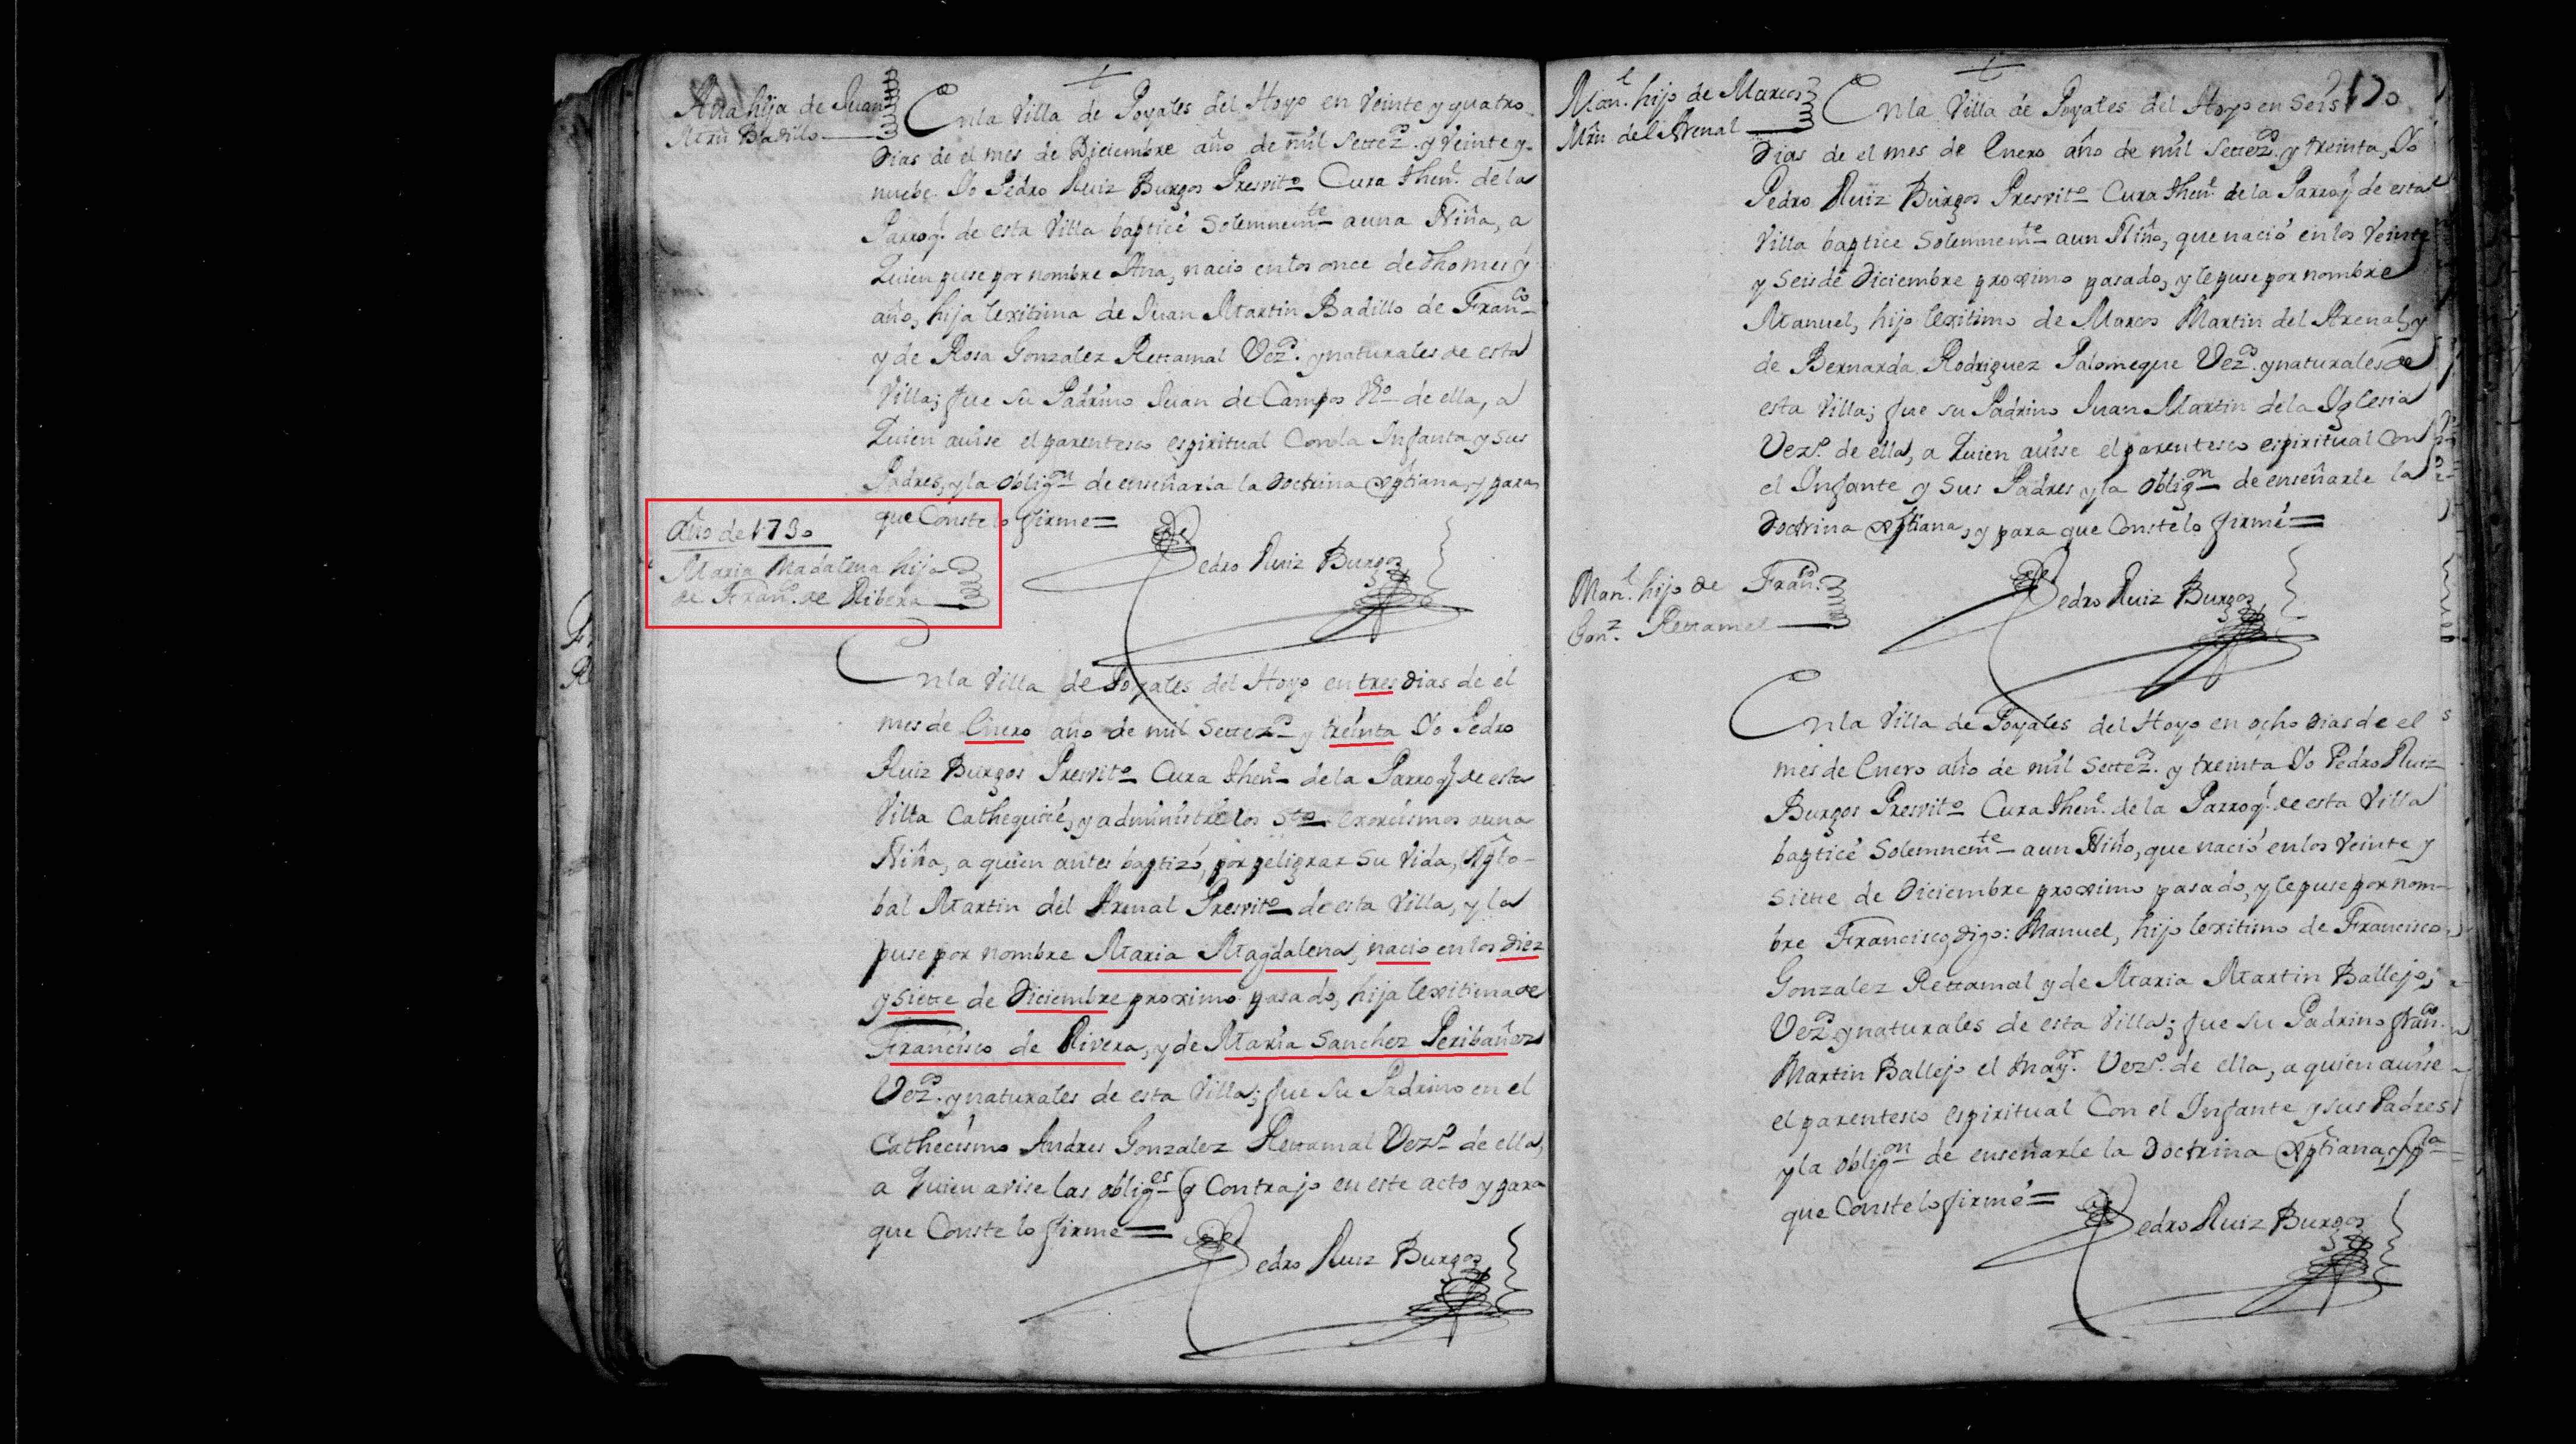 Ana hija de Juan
Mrn Badillo
En la Villa de Poyales del Hoyo en Veinte y quatro
dias de el mes de Diciembre año de mil Settezos. y Veinte y
nuebe. Yo Pedro Ruiz Burgos Presvito Cura thene. de la
Parroql. de esta Villa baptice Solemnemte a una Niña, a
Quien puse por nombre Ana, nacio en los once de dho mes y
año, hija lexitima de Juan Martin Badillo de Franco
y de Rosa Gonzalez Retamal Vezos. y naturales de esta
Villa; fue su Padrino Juan de Campos Vo de ella, a
Quien avise el parentesco espiritual Con la Infanta y sus
Padres, y la obligon de enseñarla la Doctrina Xptiana, y para
que Conste lo firme =
Pedro Ruiz Burgos
Año de 1730
Maria Madalena hija
de Franco. de Ribera
En la Villa de Poyales del Hoyo en tres dias de el
mes de Enero año de mil Settezos y treinta Yo Pedro
Ruiz Burgos Presvito Cura thene de la Parroql de esta
Villa Cathequicé, y administré los Stos exorcismos a una
Niña, a quien antes baptizó, por peligrar su Vida, Xpto-
bal Martin del Arenal Presvito de esta Villa, y la
puse por nombre Maria Magdalena, nacio en los diez
y siette de Diciembre proximo pasado, hija lexitima de
Francisco de Rivera, y de Maria Sanchez Peribañez
Vezos. y naturales de esta Villa; fue su Padrino en el
Cathecismo Andres Gonzalez Retamal Vezo de ella,
a Quien avise las obliges q Contrajo en este acto y para
que Conste lo firme =
Pedro Ruiz Burgos
Manl. hijo de Marcos
Mrn del Arenal
170
En la Villa de Poyales del Hoyo en Seis
dias de el mes de Enero año de mil Settezos. y treinta, Yo
Pedro Ruiz Burgos Presvito Cura thene. de la Parroql de esta
Villa baptice Solemnemte a un Niño, que nació en los Veinte
y Seis de Diciembre proximo pasado, y le puse por nombre
Manuel, hijo lexitimo de Marcos Martin del Arenal, y
de Bernarda Rodriguez Palomeque Vezos. y naturales de
esta Villa; fue su Padrino Juan Martin de la Iglesia
Vezo. de ella, a Quien avise el parentesco espiritual Con
el Infante y sus Padres y la obligon de enseñarle la
Doctrina Xptiana, y para que Conste lo firmé =
Pedro Ruiz Burgos
Manl. hijo de Franco.
Gonz. Retamal
En la Villa de Poyales del Hoyo en ocho dias de el
mes de Enero año de mil Settezos. y treinta Yo Pedro Ruiz
Burgos Presvito Cura thene. de la Parroql. de esta Villa
baptice Solemnemte a un Niño, que nació en los Veinte y
siette de Diciembre proximo pasado, y le puse por nom-
bre Francisco, digo: Manuel, hijo lexitimo de Francisco
Gonzalez Retamal y de Maria Martin Ballejo,
Vezos y naturales de esta Villa; fue su Padrino Franco.
Martin Ballejo el Mayor. Vezo. de ella, a quien avise
el parentesco espiritual Con el Infante y sus Padres
y la obligon de enseñarle la Doctrina Xptiana, y pa
que Conste lo firmé =
Pedro Ruiz Burgos